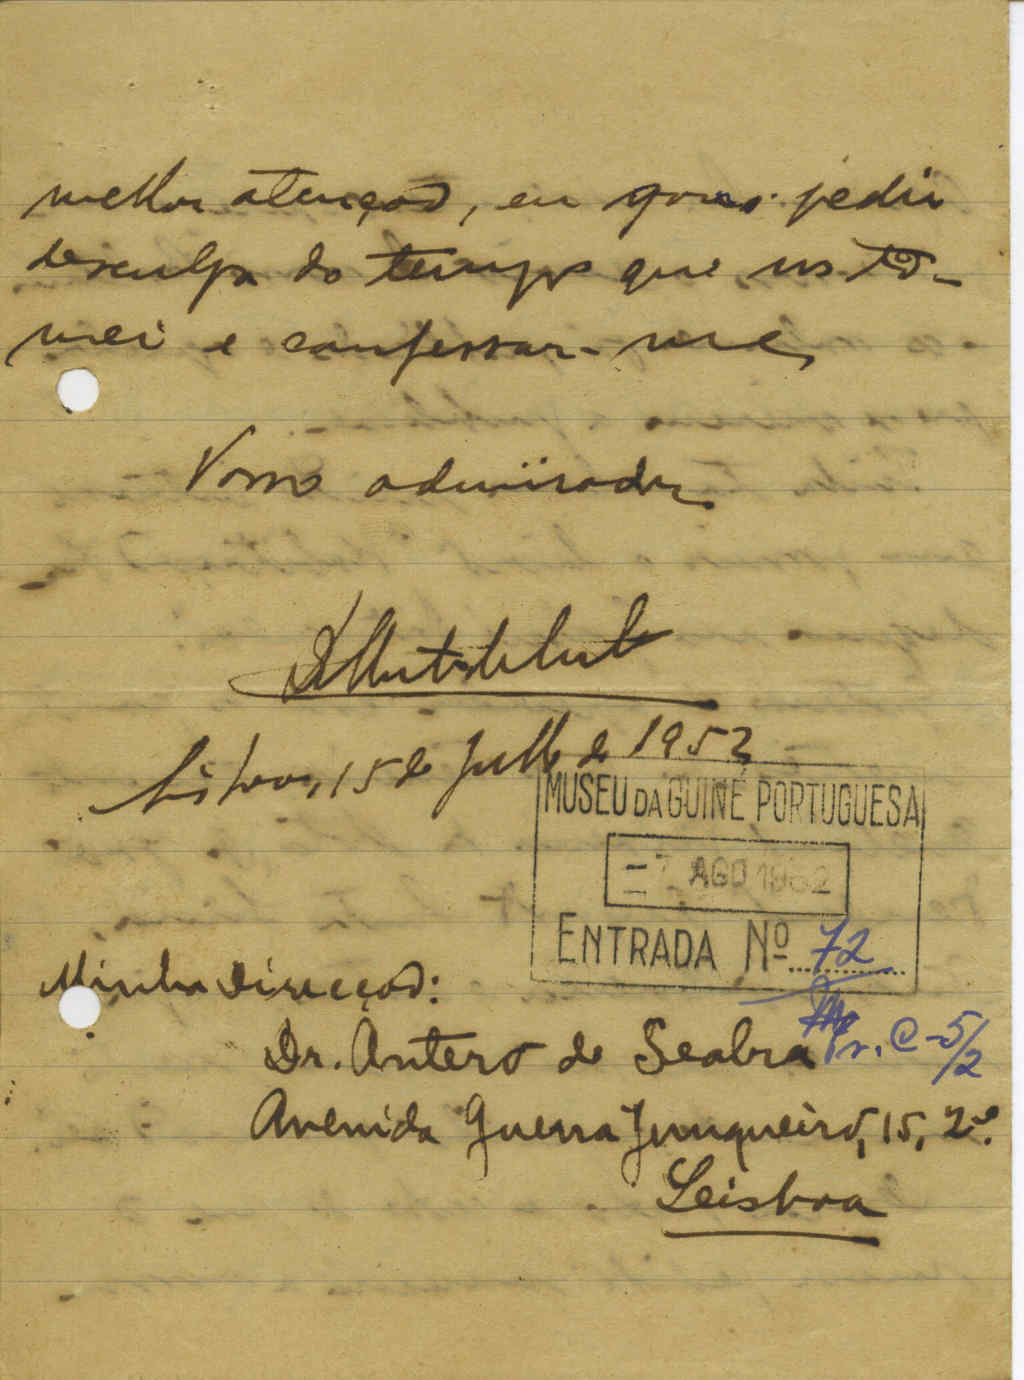 melhor atenção, eu quero pedir
desculpa do tempo que vos to-
mei e confessar-me,
Vosso admirador
Lisboa, 15 de Julho de 1952
MUSEU DA GUINÉ PORTUGUESA
-7 AGO 1952
ENTRADA Nº 72
Minha direcção:
Pr. C-5/2
Dr. Antero de Seabra
Avenida Guerra Junqueiro, 15, 2º.
Leisboa